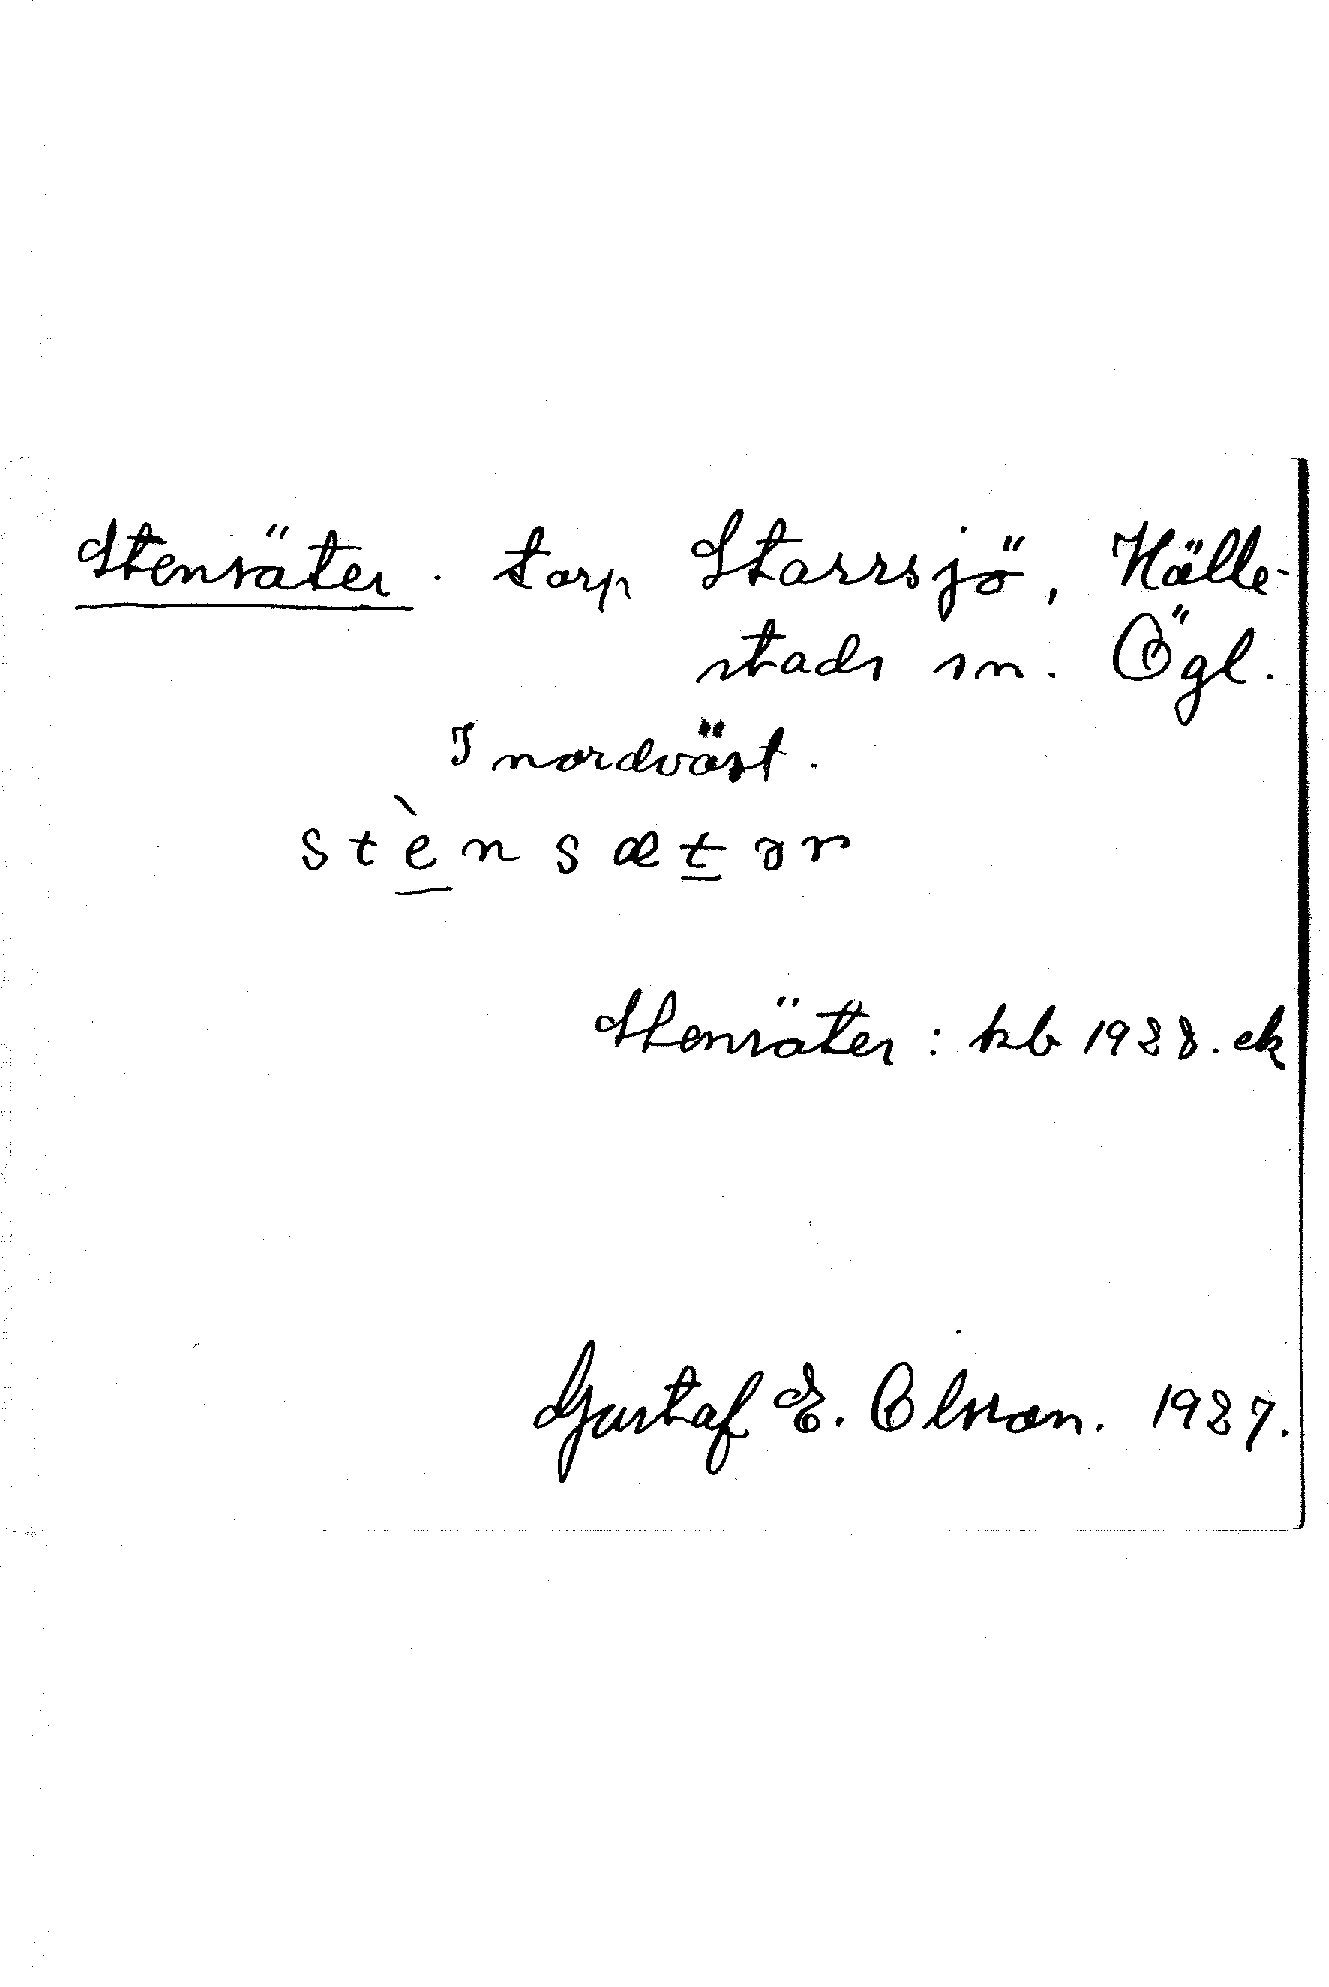 Stensäter. torp Starrsjö, Hälle-
stads sn. Ögl.
I nordväst.
stènsætər
Stensäter: kb 1928. ek
Gustaf E. Olsson. 1927.